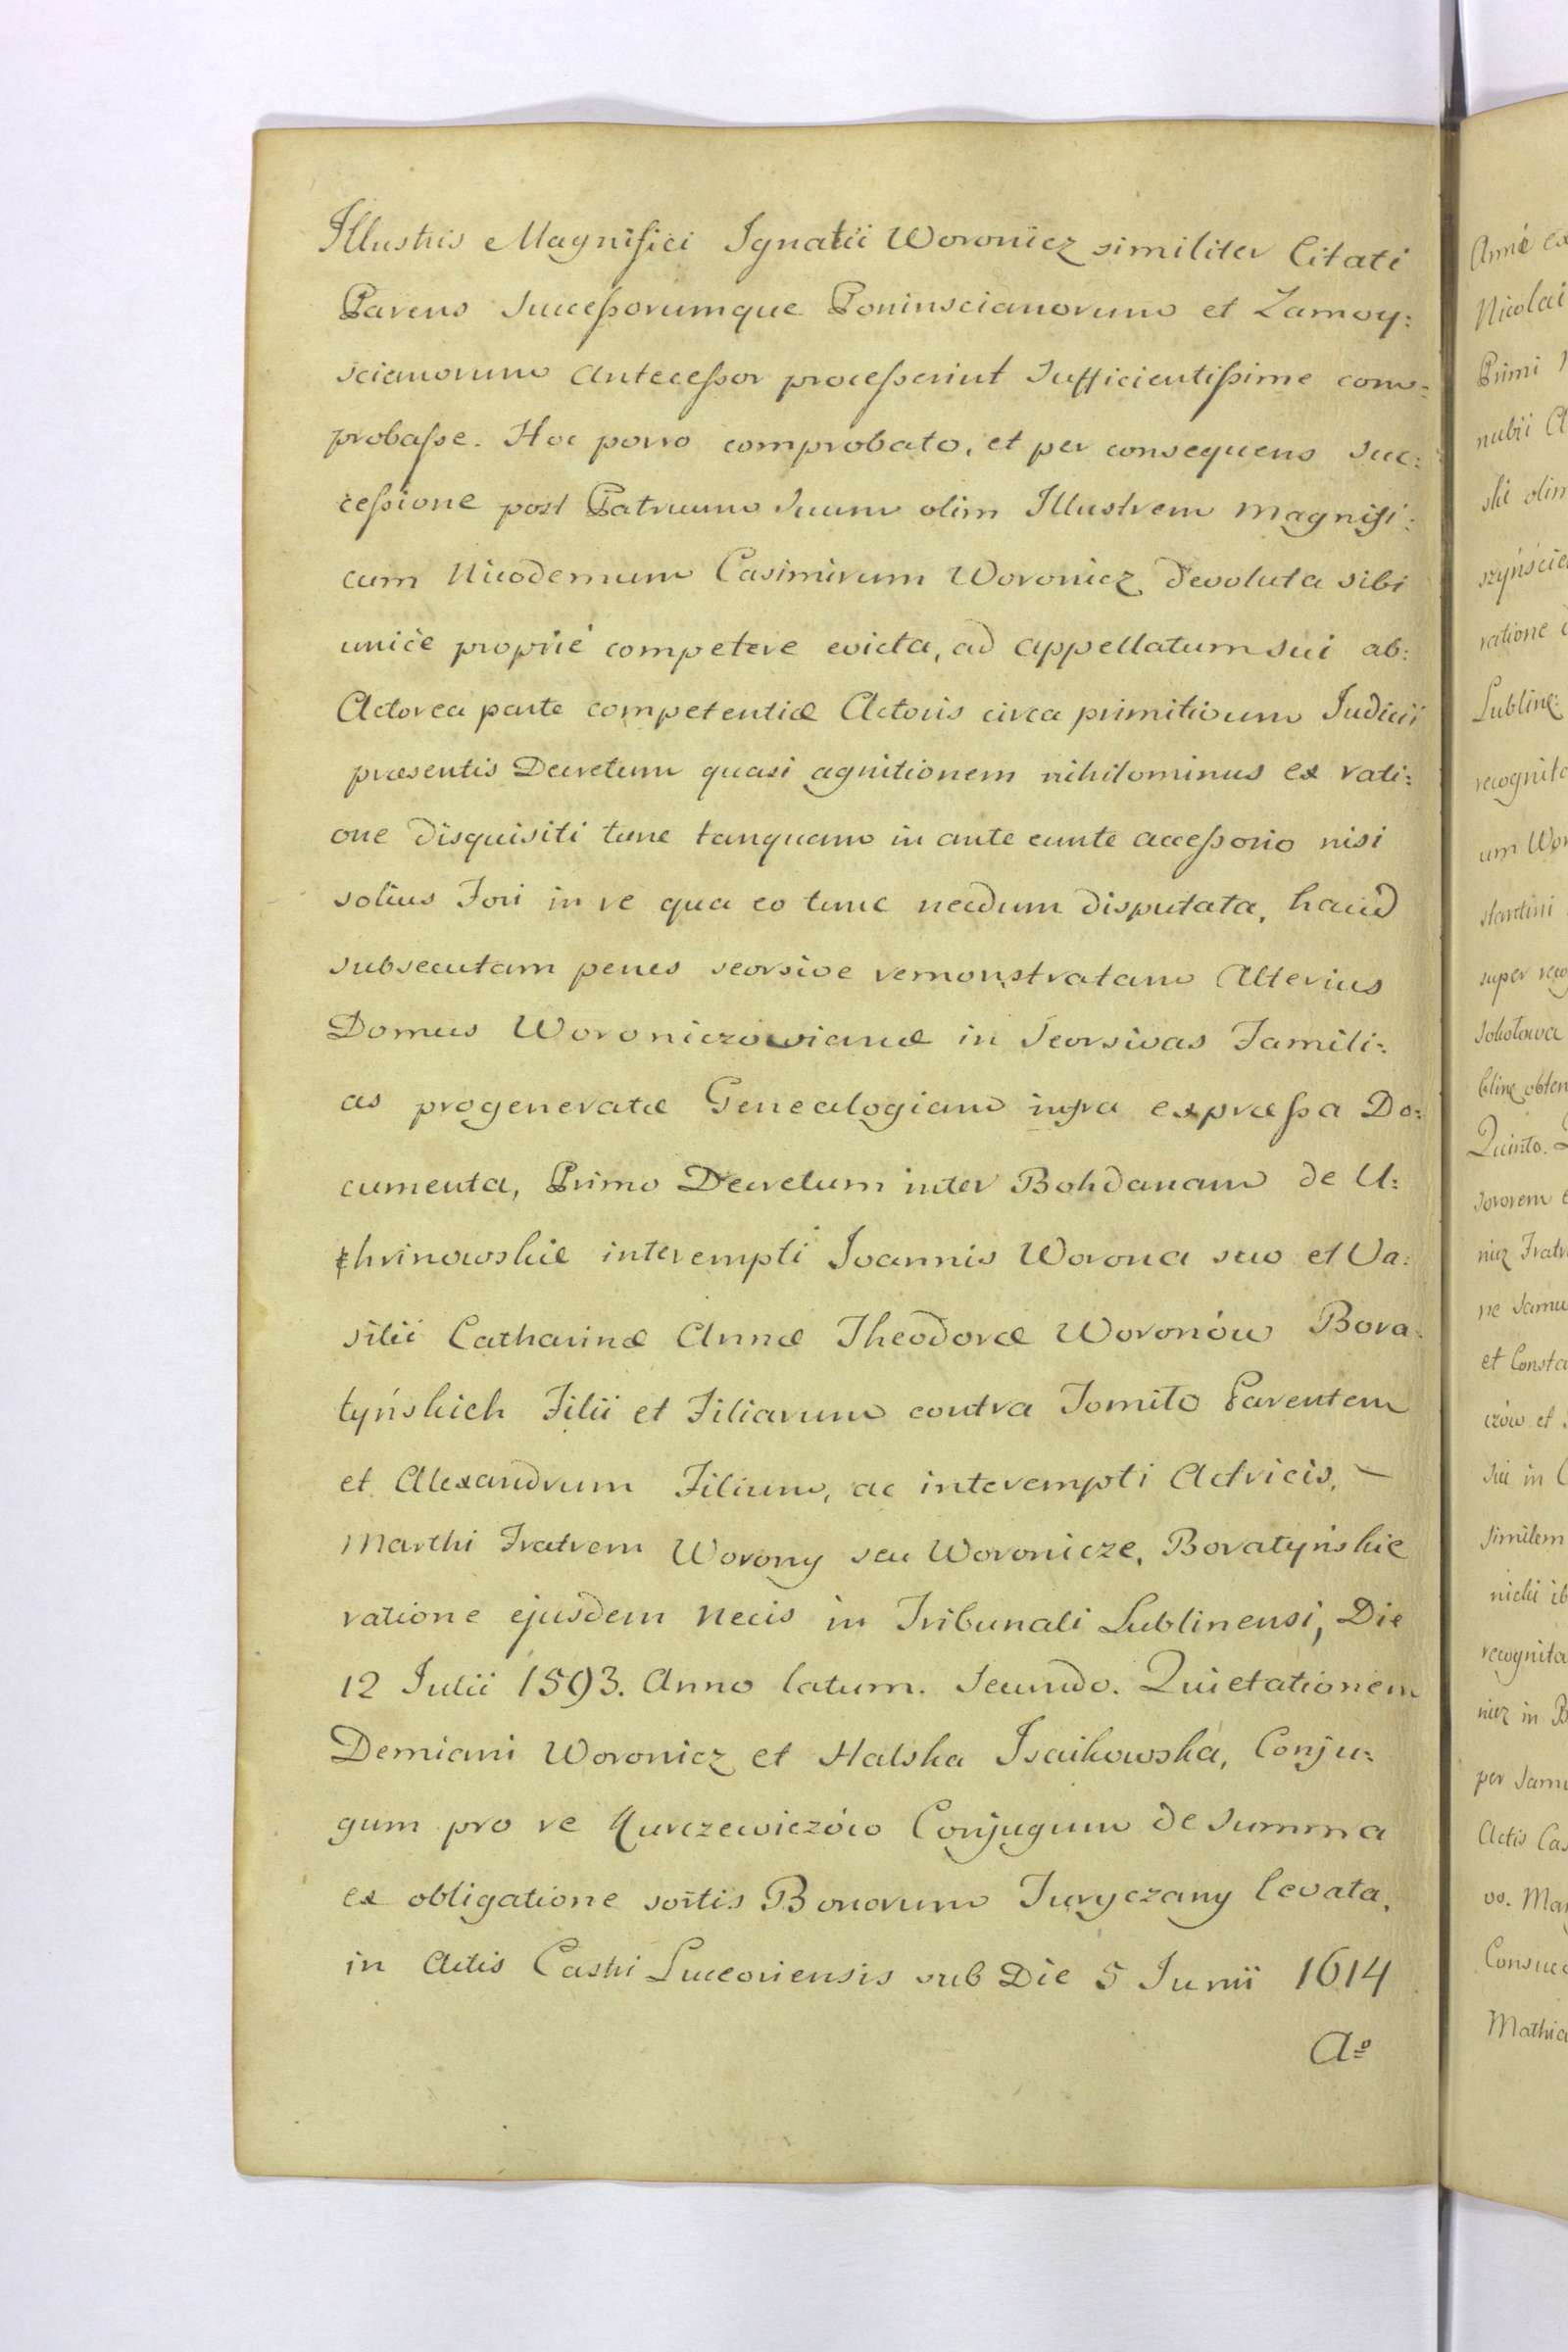 Illustris Magnifici Ignatii Woronicz similiter Citati
Parens Successorumque Poninscianorum et Zamoy:
scianorum Antecessor processerint Sufficientissime com:
probasse. Hoc porro comprobato, et per consequens Suc:
cessione post Patruum Suum olim Illustrem Magnifi:
cum Nicodemum Casimirum Woronicz devoluta sibi
unicè propriè competere evicta, ad appellatum sui ab:
Actorea parte competentiæ Actoris circa primitivum Judicii
præsentis Decretum quasi agnitionem nihilominus ex rati:
one disquisiti tunc tanquam in ante eunte accessorio nisi
solius Fori in re qua eo tunc necdum disputata, haud
subsecutam penes seorsive remonstratam Alterius
Domus Woroniczowianæ in Seorsivas Famili:
as progeneratæ Genealogiam infra expræssa Do:
cumenta, Primo Decretum inter Bohdanam de U:
hrinowskie interempti Joannis Worona suo et Va:
silii Catharinæ Annæ Theodoræ Woronów Bora:
tyńskich Filii et Filiarum contra Tomito Parentem
et Alexandrum Filium, ac interempti Actricis,
Marthi Fratrem Worony seu Woronicze, Boratyńskie
ratione ejusdem Necis in Tribunali Lublinensi, Die
12 Julii 1593. Anno latum. Secundo. Quietationem
Demiani Woronicz et Halska Isaikowska, Conju:
gum pro re Kurczewiczów Conjugum de Summa
ex obligatione sortis Bonorum Juryczany levata,
in Actis Castri Luceoriensis sub Die 5 Junii 1614
Aº
Nicolai
Primi
nubii
ski olim
ratione
um
super
Quinto.
Sororem
et
similem
in
per
Actis